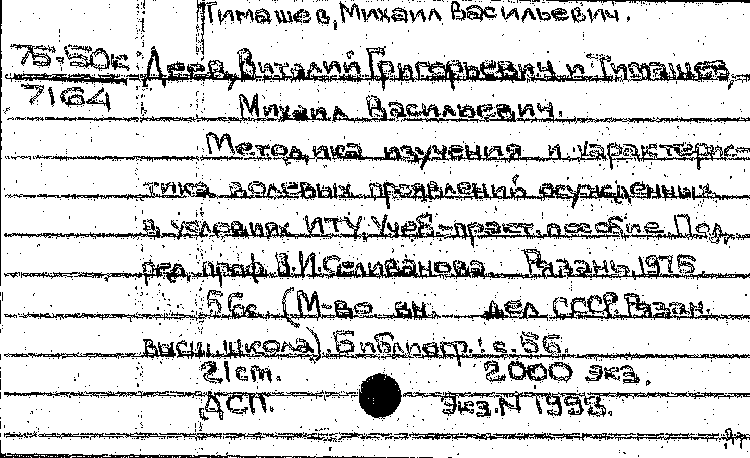 Тимашев, Михаил Васильевич.
75-50к Деев, Виталий Григорьевич и Тимашев,
7164 Михаил Васильевич.
Методика изучения и характерис-
тика волевых проявлений осужденных
в условиях ИТУ. Учеб.-практ. пособие. Под
ред. проф. В.И. Селиванова. Рязань, 1975.
56с. (М-во вн. дел СССР. Рязан.
высш. школа). Библиогр.: с. 56.
21 cm. 2000 экз.
ДСП. Экз. N 1993.